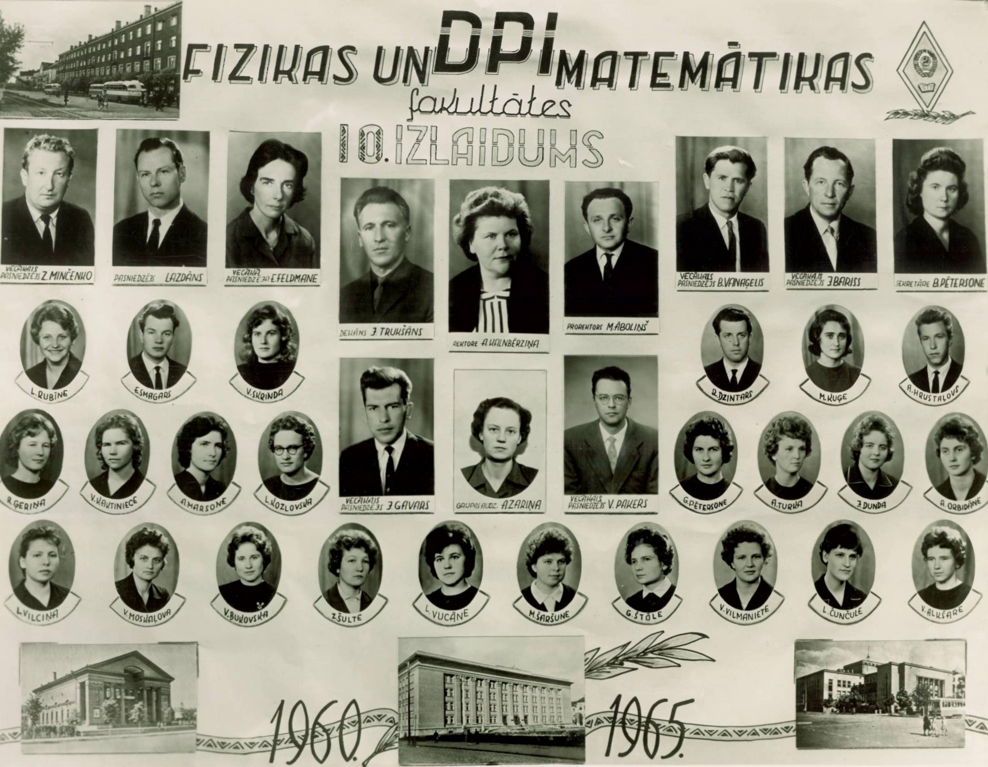 FIZIKAS UN DPI MATEMĀTIKAS
fakultātes
10. IZLAIDUMS
VECĀKAIS
PASNIEDZĒJS Z.MINČENKO
PASNIEDZĒJS LAZDĀNS
VECĀKĀ
PASNIEDZĒJA E.FELDMANE
DEKĀNS J TRUKŠĀNS
REKTORE A.KALNBĒRZIŅA
PROREKTORS M.ĀBOLIŅŠ
VECĀKAIS
PASNIEDZĒJS B.VANAGELIS
VECĀKAJS
PASNIEDZĒJS J BARISS
SEKRETĀRE B.PĒTERSONE
L.RUBĪNE
E.SMAGARS
V.SKRINDA
R.DZINTARS
M.KUĢE
A.HRUSTAĻOVS
VECĀKAIS
PASNIEDZĒJS J GAVARS
GRUPAS AUDZ. A.ZARIŅA
VECĀKAIS
PASNIEDZĒJS V. PAKERS
R.GERIŅA
V.KAKTINIECE
A.MARSONE
L.KOZLOVSKA
G.PĒTERSONE
A.TURKA
J.DUNDA
A.ORBIDĀNE
L.VILCIŅA
V.MOSKAĻOVA
V.BUKOVSKA
Z.ŠULTE
L.VUCĀNE
M.ŠARŠUNE
G.STŌLE
V.VILMANIETE
L.ČUNČULE
V.ALKŠARE
1960. 1965.